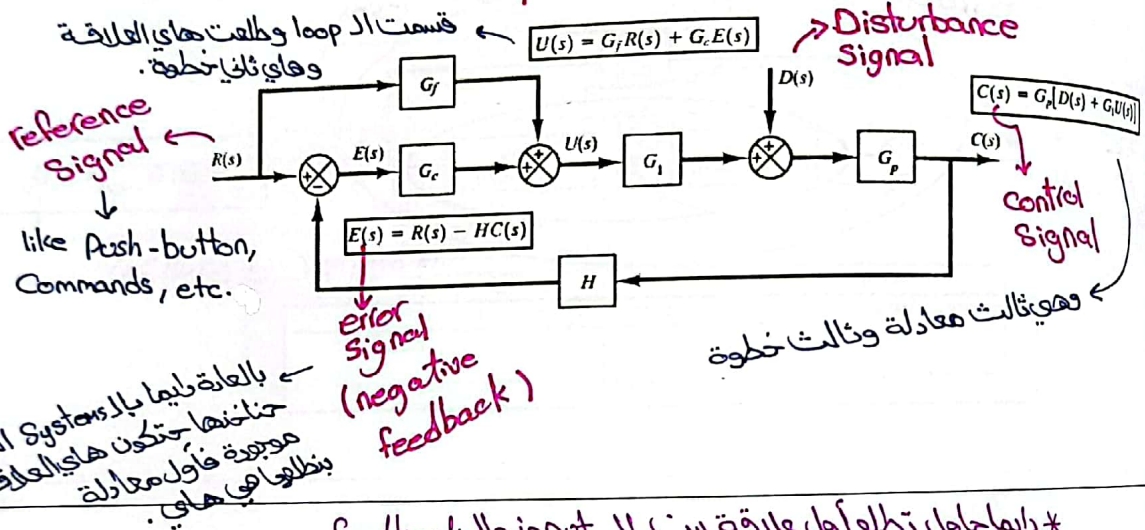 قسمت الـ loop وطلعت هاي العلاقة
وهاي ثاني خطوة.
U(s) = G_f R(s) + G_c E(s)
Disturbance
Signal
D(s)
C(s) = G_p[D(s) + G_1U(s)]
reference
Signal
R(s)
G_f
E(s)
G_c
U(s)
G_1
G_p
C(s)
+
−
+
+
+
+
like Push-button,
Commands, etc.
E(s) = R(s) − HC(s)
H
Control
Signal
error
Signal
(negative
feedback)
وهي ثالث معادلة وثالث خطوة
بالعادة دايما بالـ Systems
حناخذها حتكون هاي
موجودة فأول معادلة
بنطلعها هي هاي.